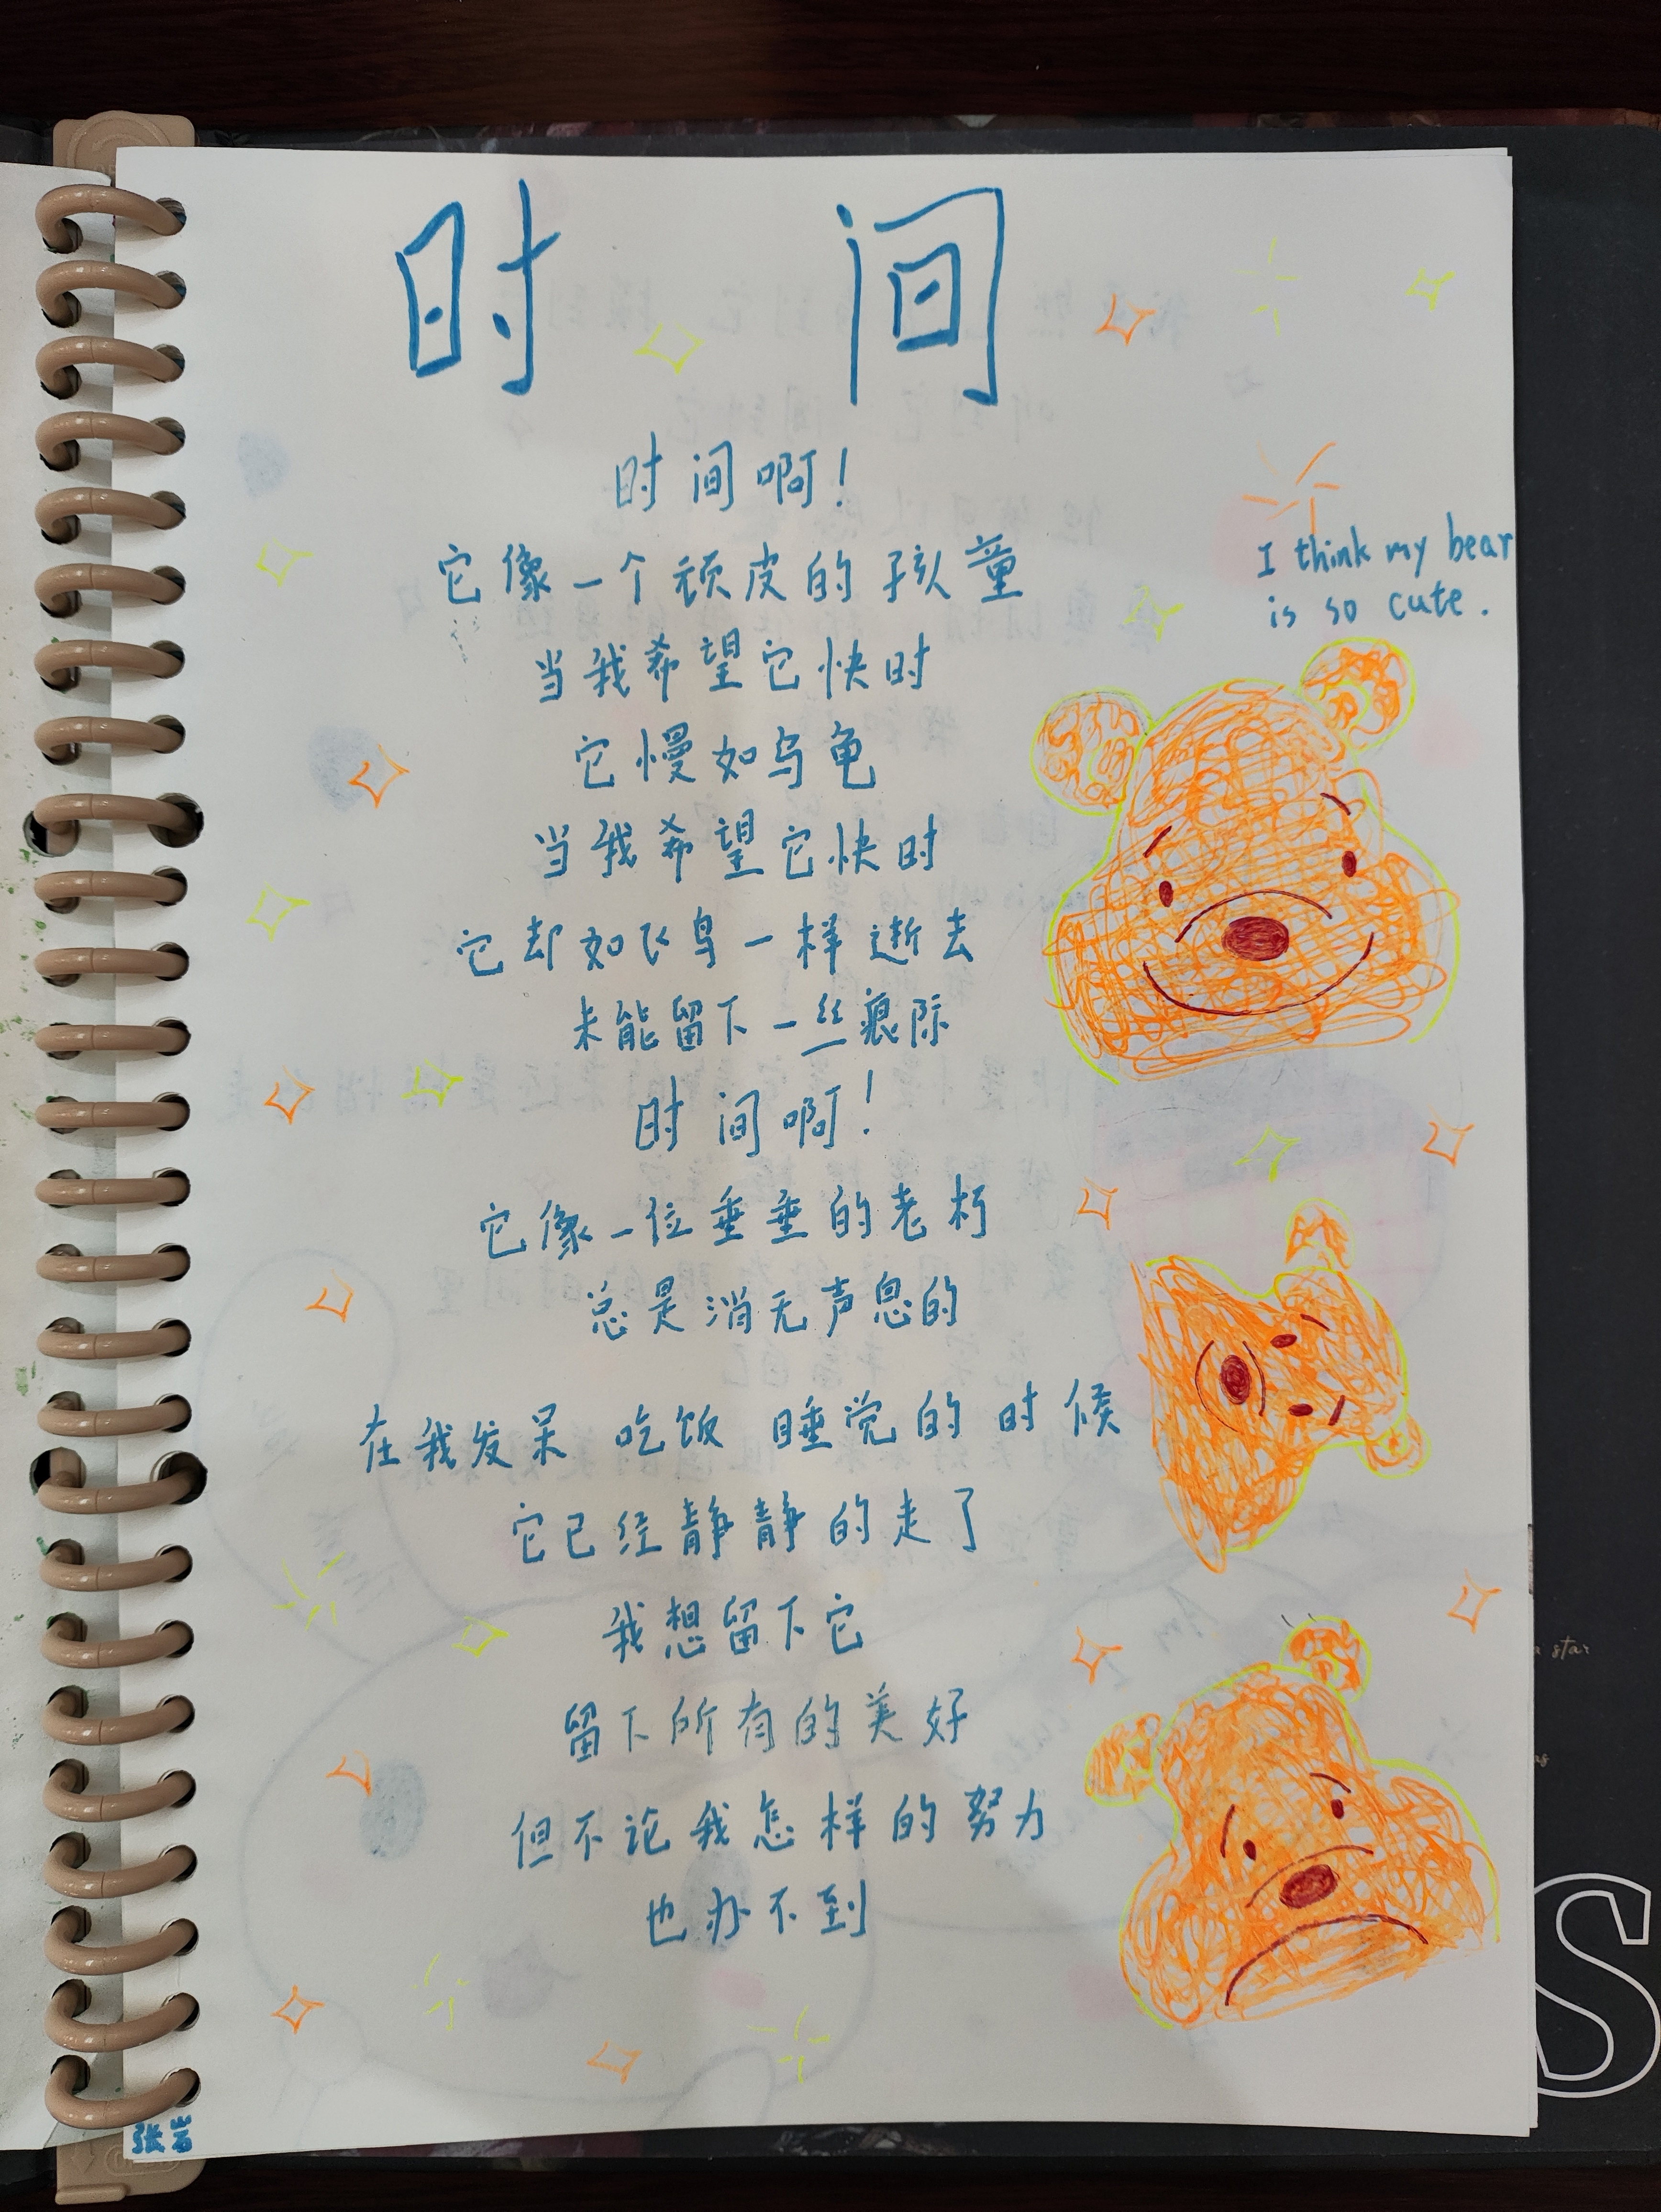 时间
时间啊！
它像一个顽皮的孩童
当我希望它快时
它慢如乌龟
当我希望它快时
它却如飞鸟一样逝去
未能留下一丝痕际
时间啊！
它像一位垂垂的老朽
总是消无声息的
在我发呆 吃饭 睡觉的时候
它已经静静的走了
我想留下它
留下所有的美好
但不论我怎样的努力
也办不到
I think my bear
is so cute.
张岩
a star
as
S